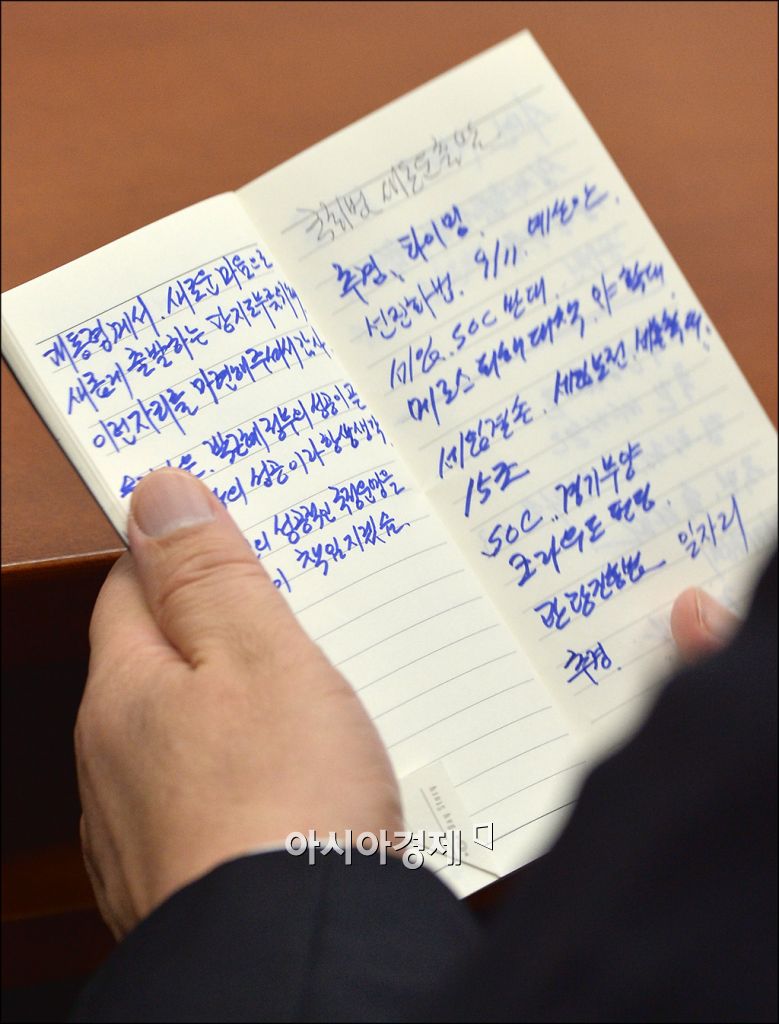 대통령께서. 새로운 마음으로
새롭게 출발하는 당 지도부를
이런자리를 마련해주셔서 감사.
박근혜 정부의 성공이 곧
의 성공이라 항상 생각.
의 성공적인 국정운영을
책임지겠슴.
국회법 새로운 출발
추경. 타이밍.
선진화법. 9/11. 예산안.
세입. SOC 반대.
메르스 피해 대책. 확대.
세입결손. 세입보전.
15조
SOC.. 경기부양
일자리
추경.
아시아경제